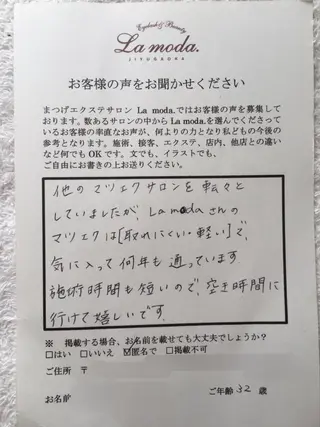 Eyelash & Beauty
La moda.
JIYUGAOKA
お客様の声をお聞かせください
まつげエクステサロン La moda.ではお客様の声を募集して
おります。数あるサロンの中から La moda.を選んでくださって
いるお客様の率直なお声が、何よりの力となり私どもの今後の
参考となります。施術、接客、エクステ、店内、他店との違い
など何でも OK です。文でも、イラストでも、
ご自由にお書きの上お送りください。
他のマツエクサロンを転々と
していましたが、La modaさんの
マツエクは[取れにくい・軽い]で、
気に入って何年も通っています
施術時間も短いので、空き時間に
行けて嬉しいです
※ 掲載する場合、お名前を載せても大丈夫でしょうか?
□はい □いいえ ☑匿名で □掲載不可
ご住所 〒
お名前 ご年齢 32 歳